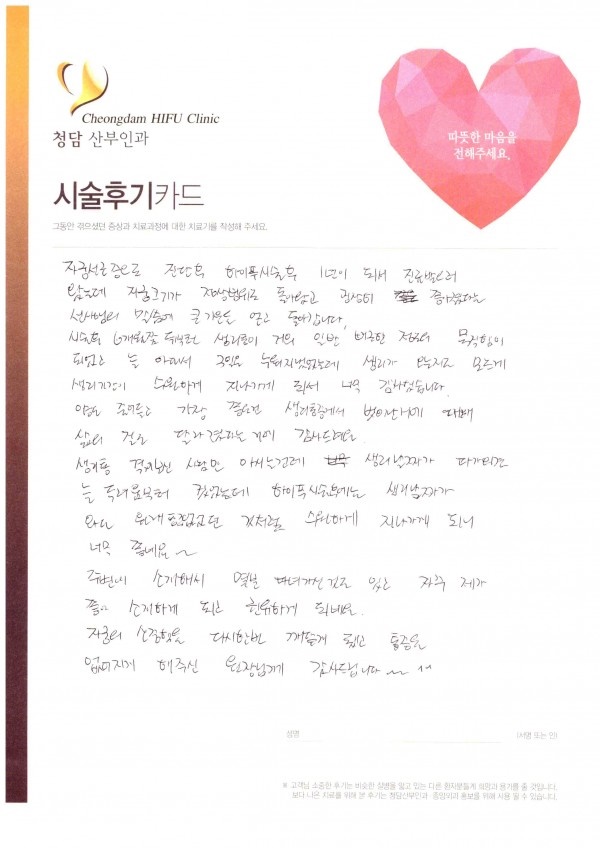 Cheongdam HIFU Clinic
청담 산부인과
따뜻한 마음을
전해주세요.
시술후기카드
그동안 겪으셨던 증상과 치료과정에 대한 치료기를 작성해 주세요.
자궁선근증으로 진단후 하이푸시술후 1년이 되서 진료받으러
왔는데 자궁크기가 정상범위로 돌아왔고 굉장히 좋아졌다는
선생님의 말씀에 큰 기쁨을 얻고 돌아갑니다.
시술후 6개월쯤 뒤부턴 생리통이 거의 일반 버금한 정도의 움직임이
되었고 늘 아파서 누워지냈었는데 생리가 오는지도 모르게
생리기간이 수월하게 지나가게 되서 너무 감사했습니다.
약도 줄어들고 가장 중요한 생리통증에서 벗어난거에 대해
삶의 질도 달라졌다는 거에 감사드려요.
생리통 겪어보신 사람만 아시는건데 생리날짜가 다가오면
늘 두려움부터 있었는데 하이푸시술후에는 생리날짜가
와도 원래 없었던 것처럼 수월하게 지나가게 되니
너무 좋네요~
주변에 소개해서 몇분 다녀가신걸로 있고 자꾸 제가
좋아 소개하게 되고 권유하게 되네요.
자궁의 소중함을 다시한번 깨닫게 됐고 통증을
없어지게 해주신 원장님께 감사드립니다~~ ^^
성명
(서명 또는 인)
※ 고객님 소중한 후기는 비슷한 질병을 앓고 있는 다른 환자분들께 희망과 용기를 줄 것입니다.
보다 나은 치료를 위해 본 후기는 청담산부인과 종양외의 홍보를 위해 사용 될 수 있습니다.